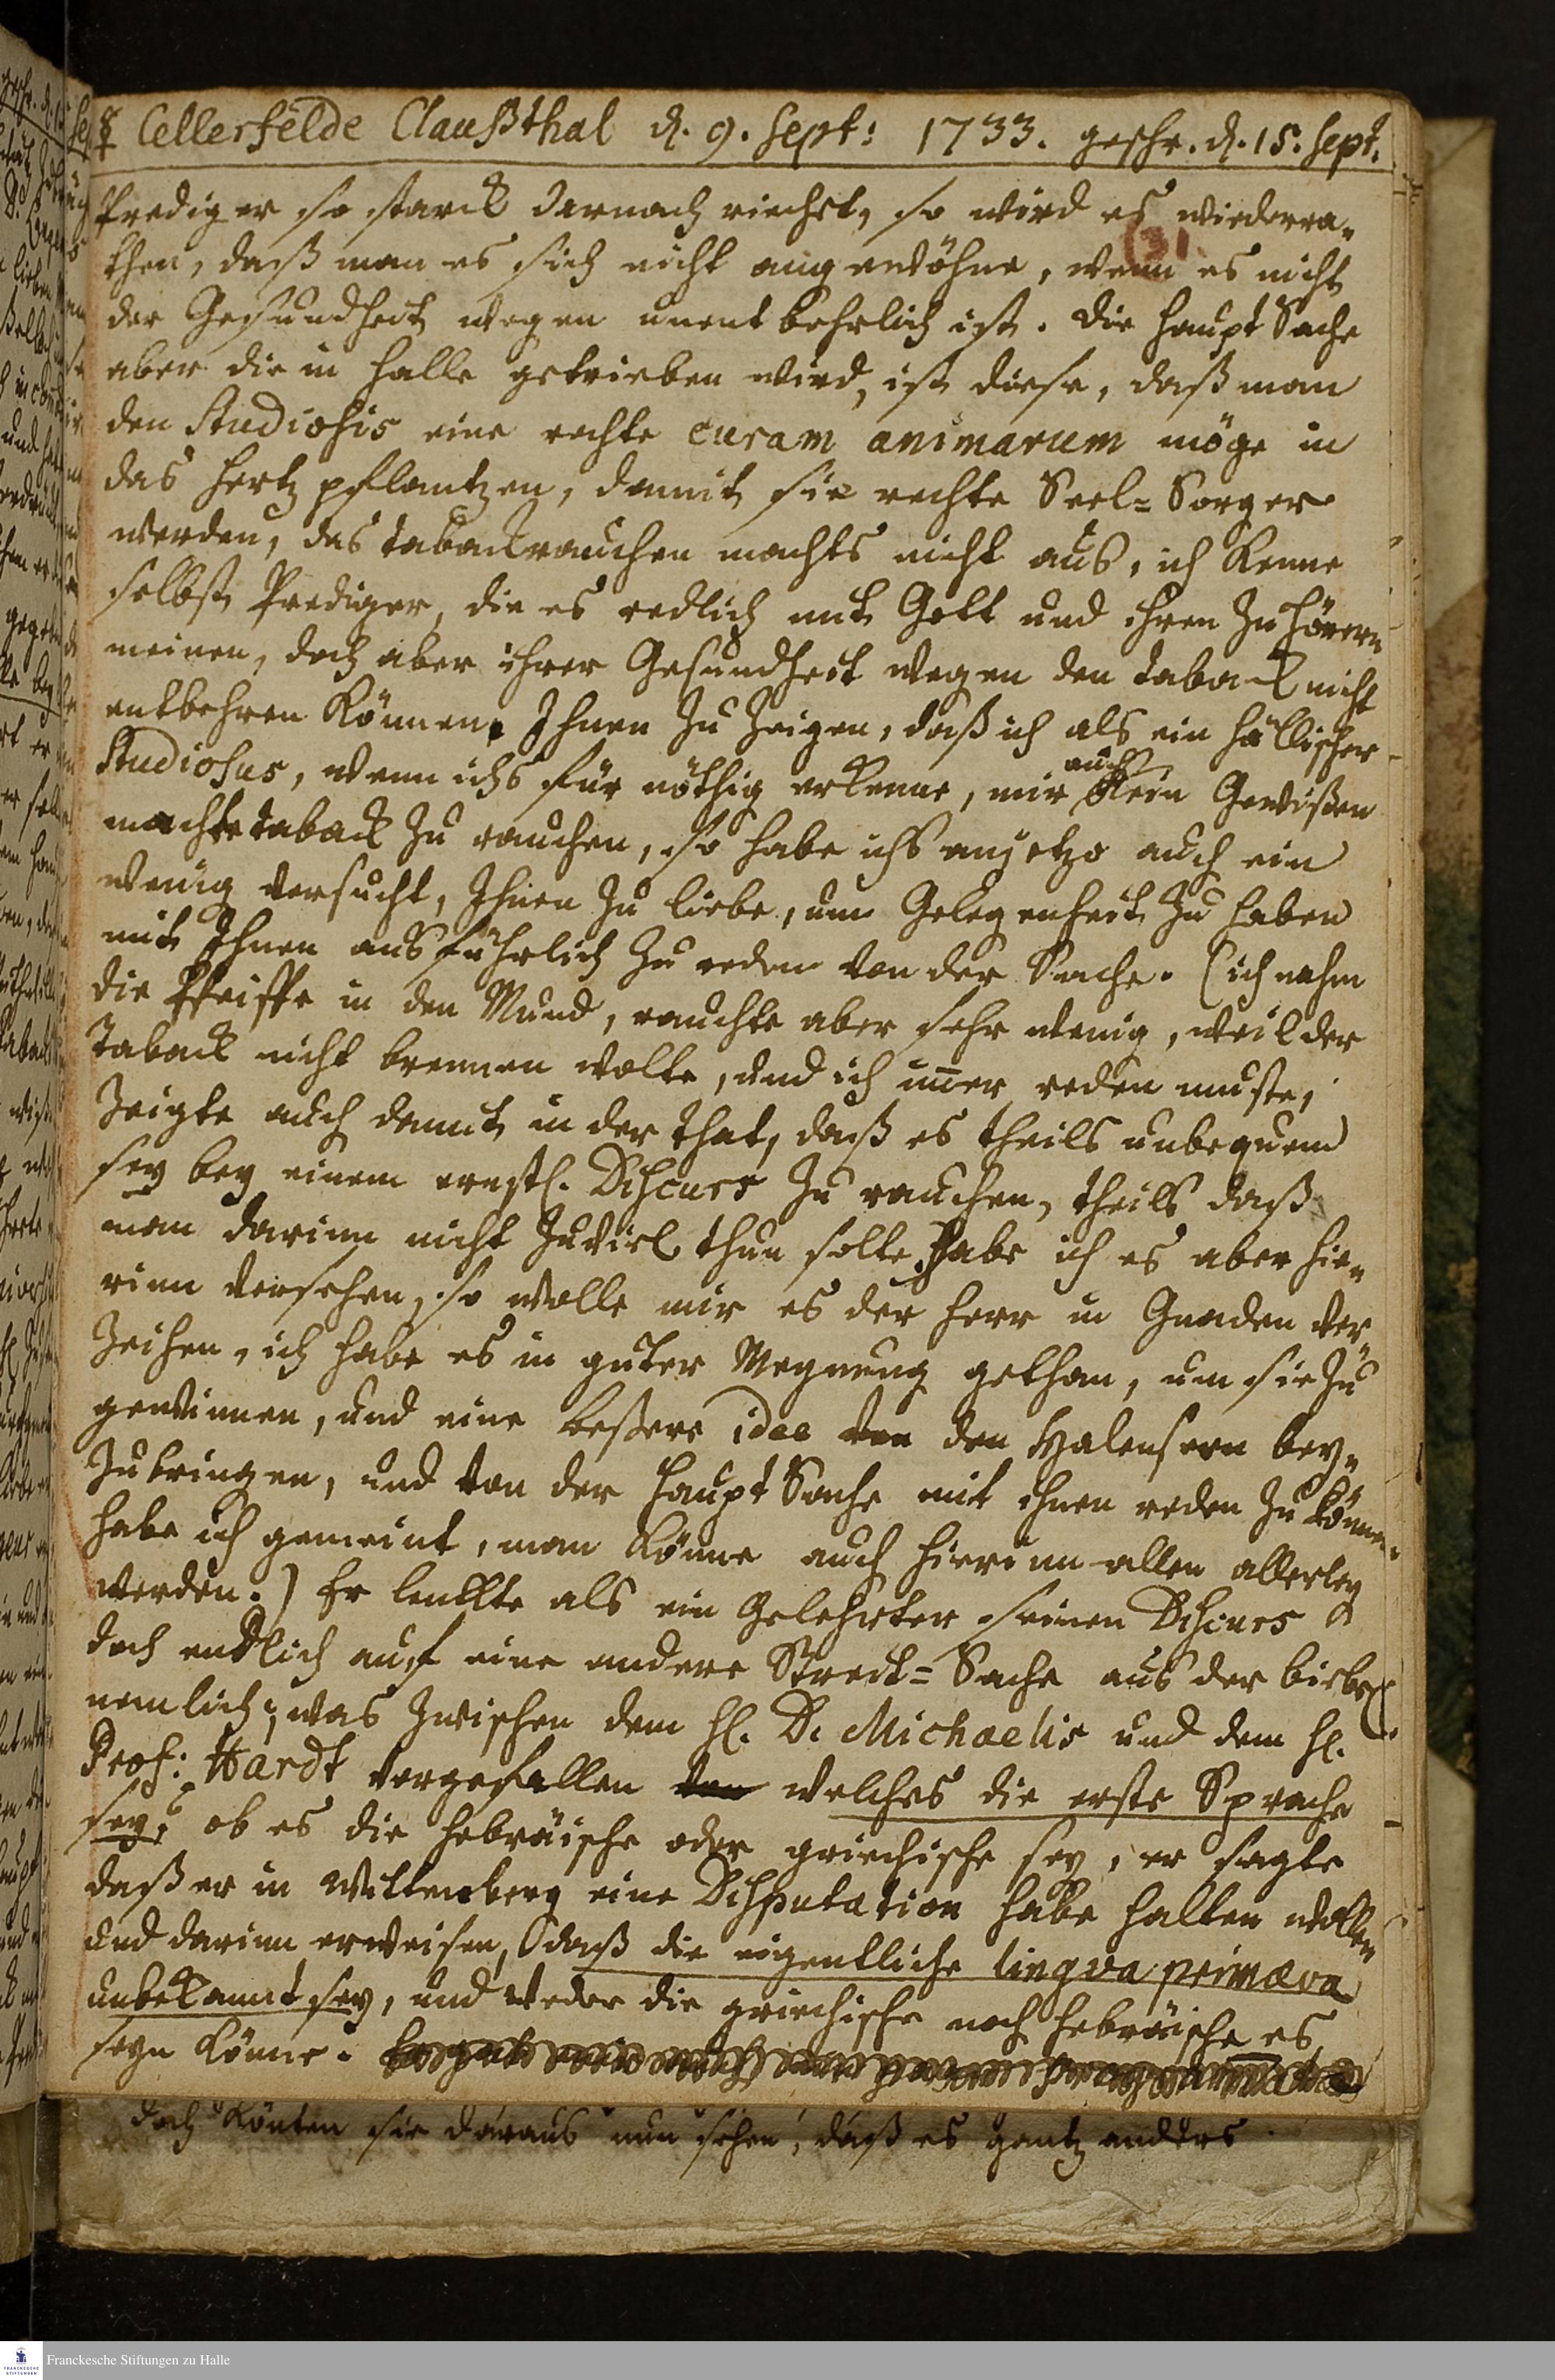 ☿ Cellerfelde Claußthal d. 9. Sept: 1733. geschr. d. 15. Sept.
(31.
Prediger so starck darnach riechet, so wird es wiederra-
then, daß man es sich nicht angewöhne, wenn es nicht
der Gesundheit wegen unentbehrlich ist. Die Haupt Sache
aber die in Halle getrieben wird, ist diese, daß man
den Studiosis eine rechte curam animarum möge in
das Hertz pflantzen, damit sie rechte Seel-Sorger
werden, das Tabackrauchen machts nicht aus, ich kenne
selbst Prediger, die es redlich mit Gott und ihren Zuhörern
meinen, doch aber ihrer Gesundheit wegen den Taback nicht
entbehren können. Ihnen zu zeigen, daß ich als ein Hällischer
Studiosus, wenn ichs für nöthig erkenne, mir auch kein Gewißen
machte Taback zu rauchen, so habe ichs anjetzo auch ein
wenig versucht, Ihnen zu liebe, um Gelegenheit zu haben
mit Ihnen ausführlich zu reden von der Sache. (ich nahm
die Pfeiffe in den Mund, rauchte aber sehr wenig, weil der
Taback nicht brennen wolte, und ich im̄er reden muste,
zeigte auch damit in der That, daß es theils unbequem
sey bey einem ernstl. Discurs zu rauchen, theils daß
man darinn nicht zuviel thun solte. Habe ich es aber hie-
rinn versehen, so wolle mir es der Herr in Gnaden ver
zeihen, ich habe es in guter Meynung gethan, um sie zu
gewinnen, und eine beßere idee von den Halensern bey-
zubringen, und von der Haupt Sache mit ihnen reden zu können
habe ich gemeint, man könne auch hierinn allen allerley
werden.) Er lenckte als ein Gelehrter seinen Discurs
doch endlich auf eine andere Streit-Sache aus der bibel
nemlich, was zwischen dem H. D. Michaelis und dem H.
Prof: Hardt vorgefallen von welches die erste Sprache
sey, ob es die hebräische oder griechische sey, er sagte
daß er in Wittenberg eine Disputation habe halten wollen
und darinn erweisen, daß die eigentliche lingva primæva
unbekannt sey, und weder die griechische noch hebräische es
seyn könne.
doch könten sie daraus nun sehen, daß es gantz anders
Franckesche Stiftungen zu Halle